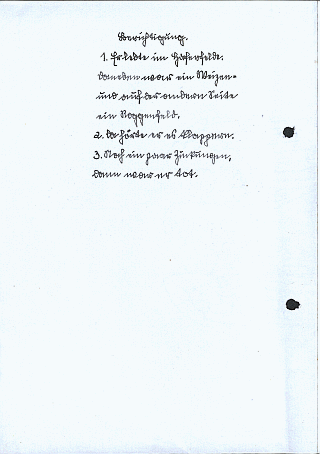 Berichtigung.
1. Er lebte im Haferfelde.
Daneben war ein Weizen-
und auf der andern Seite
ein Roggenfeld.
2. Da hörte er es klappern.
3. Noch ein paar Zuckungen,
dann war er tot.